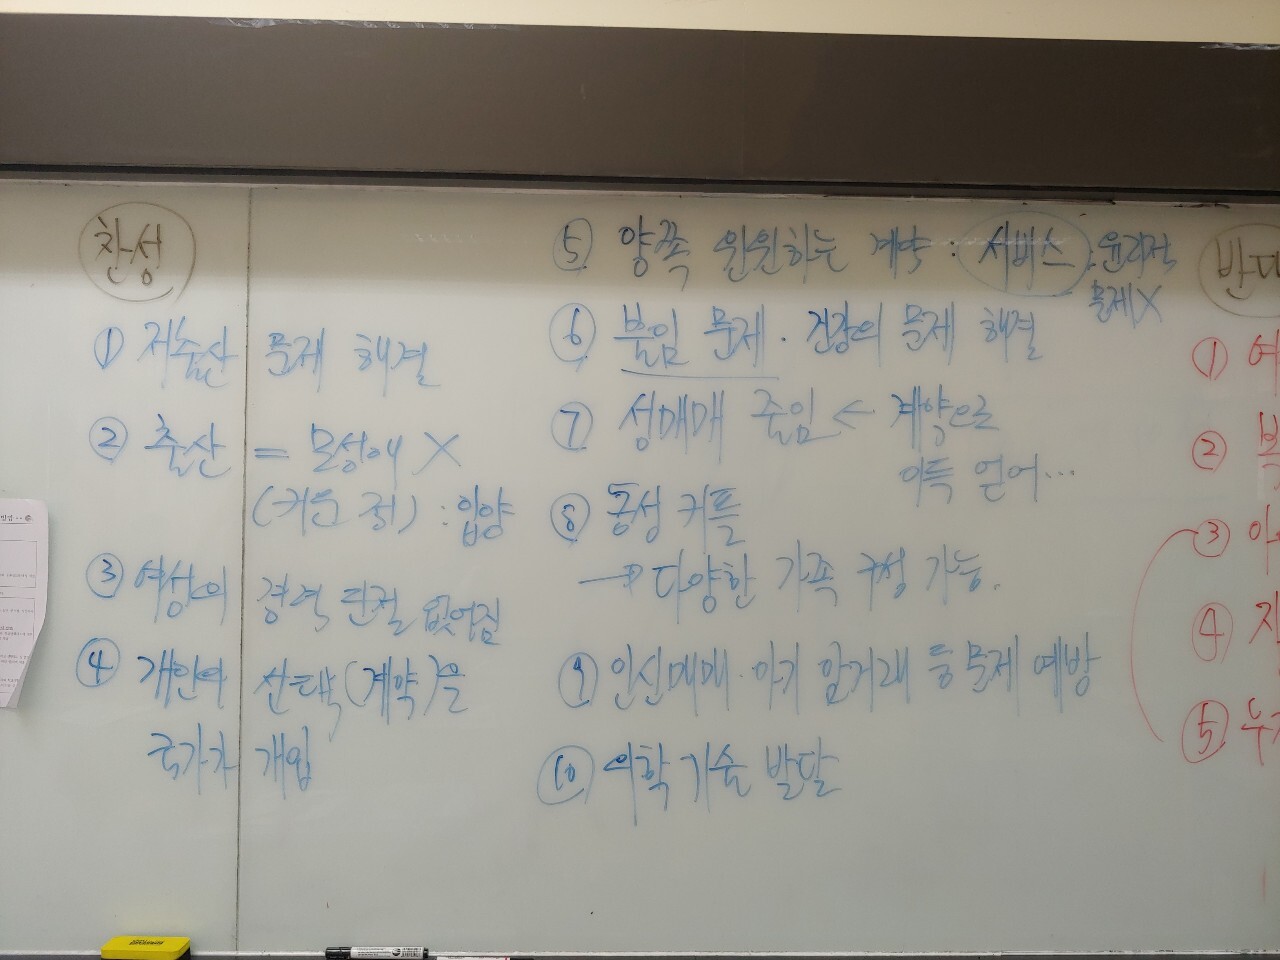 찬성
① 저출산 문제 해결
② 출산 = 모성애 X
(키운 정) : 입양
③ 여성의 경력 단절 없어짐
④ 개인의 선택(계약)을
국가가 개입
⑤ 양쪽 윈윈하는 계약 : 서비스 : 윤리적
문제X
⑥ 불임 문제 · 건강의 문제 해결
⑦ 성매매 줄임 ← 계약으로
이득 얻어...
⑧ 동성 커플
→ 다양한 가족 구성 가능.
⑨ 인신매매 · 아기 암거래 등 문제 예방
⑩ 의학 기술 발달
반대
① 여
②
③ 아
④
⑤